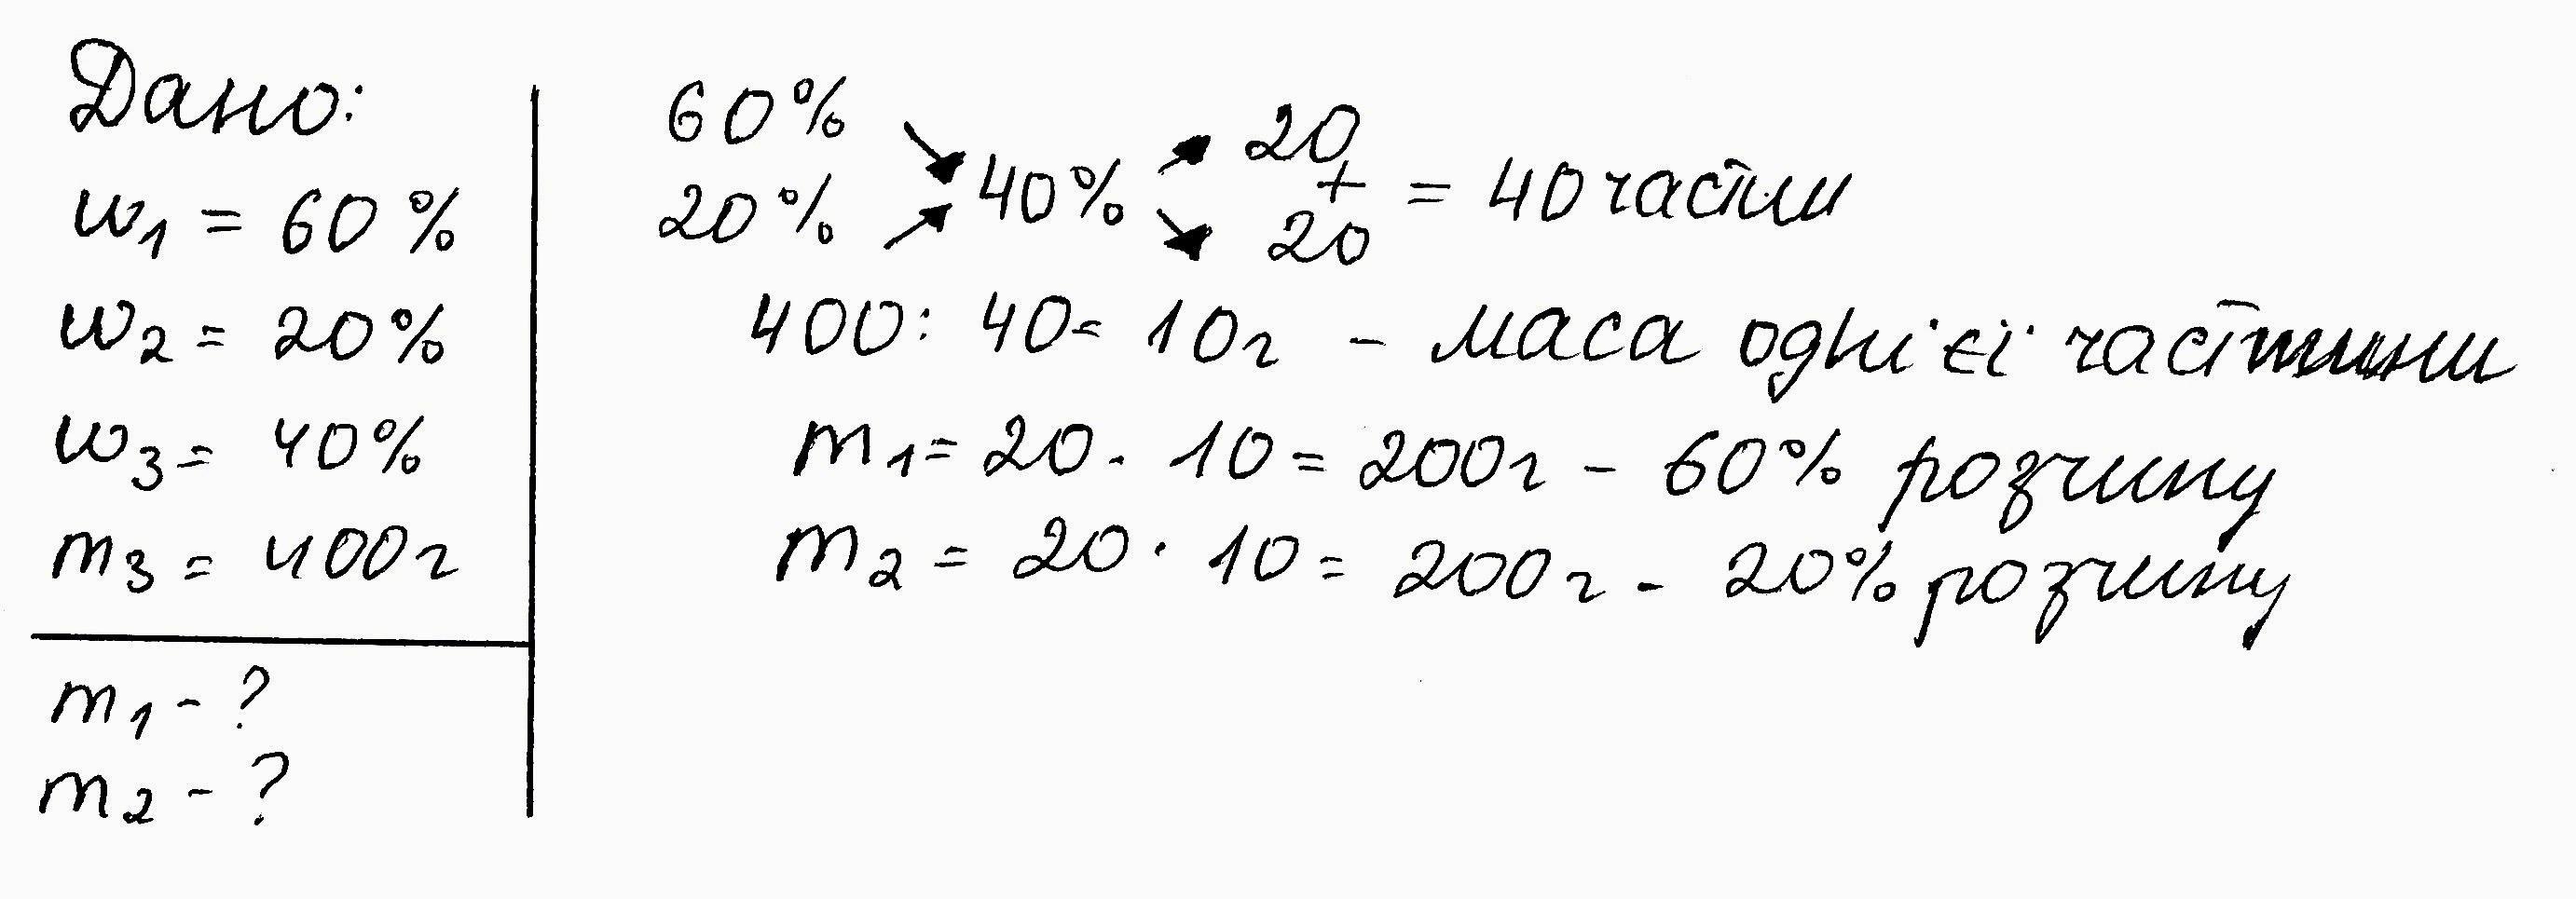 Дано:
w1 = 60%
w2 = 20%
w3 = 40%
m3 = 400г
m1 - ?
m2 - ?
60% 20
20% 40% + = 40 частин
20
400 : 40 = 10г - маса однієї частини
m1 = 20 · 10 = 200г - 60% розчину
m2 = 20 · 10 = 200г - 20% розчину